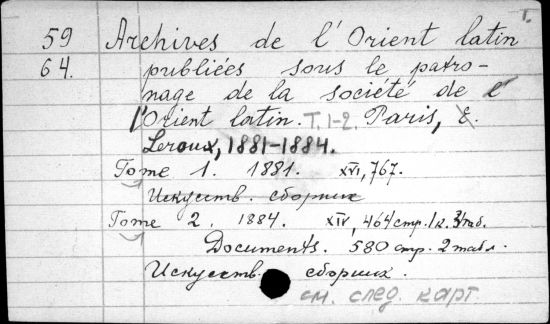 1.
59 Archives de l'Orient latin
64. publiées sous le patro-
nage de la société de l'
l'Orient latin. T. 1-2. Paris, E.
Leroux, 1881-1884.
Tome 1. 1881. XVI, 767.
Искусств. сборник
Tome 2. 1884. XIV, 464 стр. 1 к. 3 таб.
Documents. 580 стр. 2 табл.
Искусств. сборник.
см. след. карт